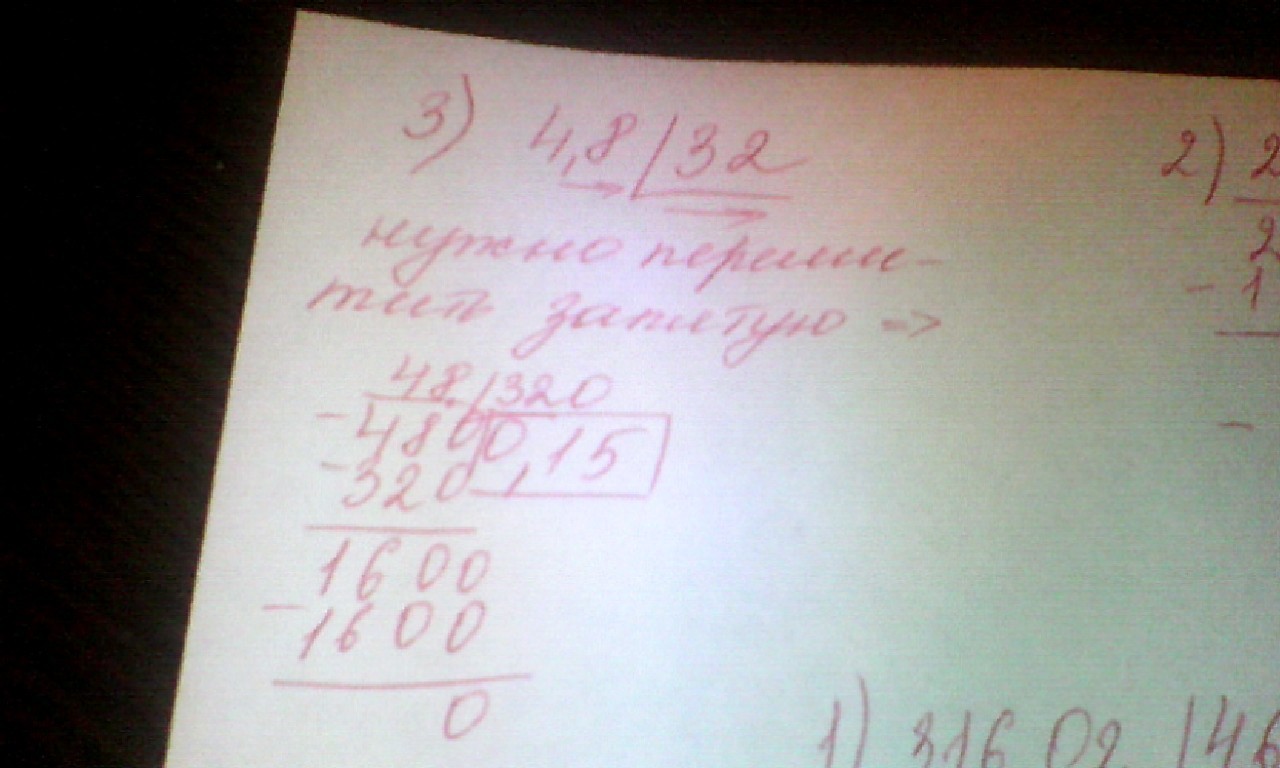 3) 4,8 32
нужно перими-
тить запитую =>
48 320
- 480 0,15
- 320
1600
- 1600
0
2) 2
2
- 1
-
1) 31602 46